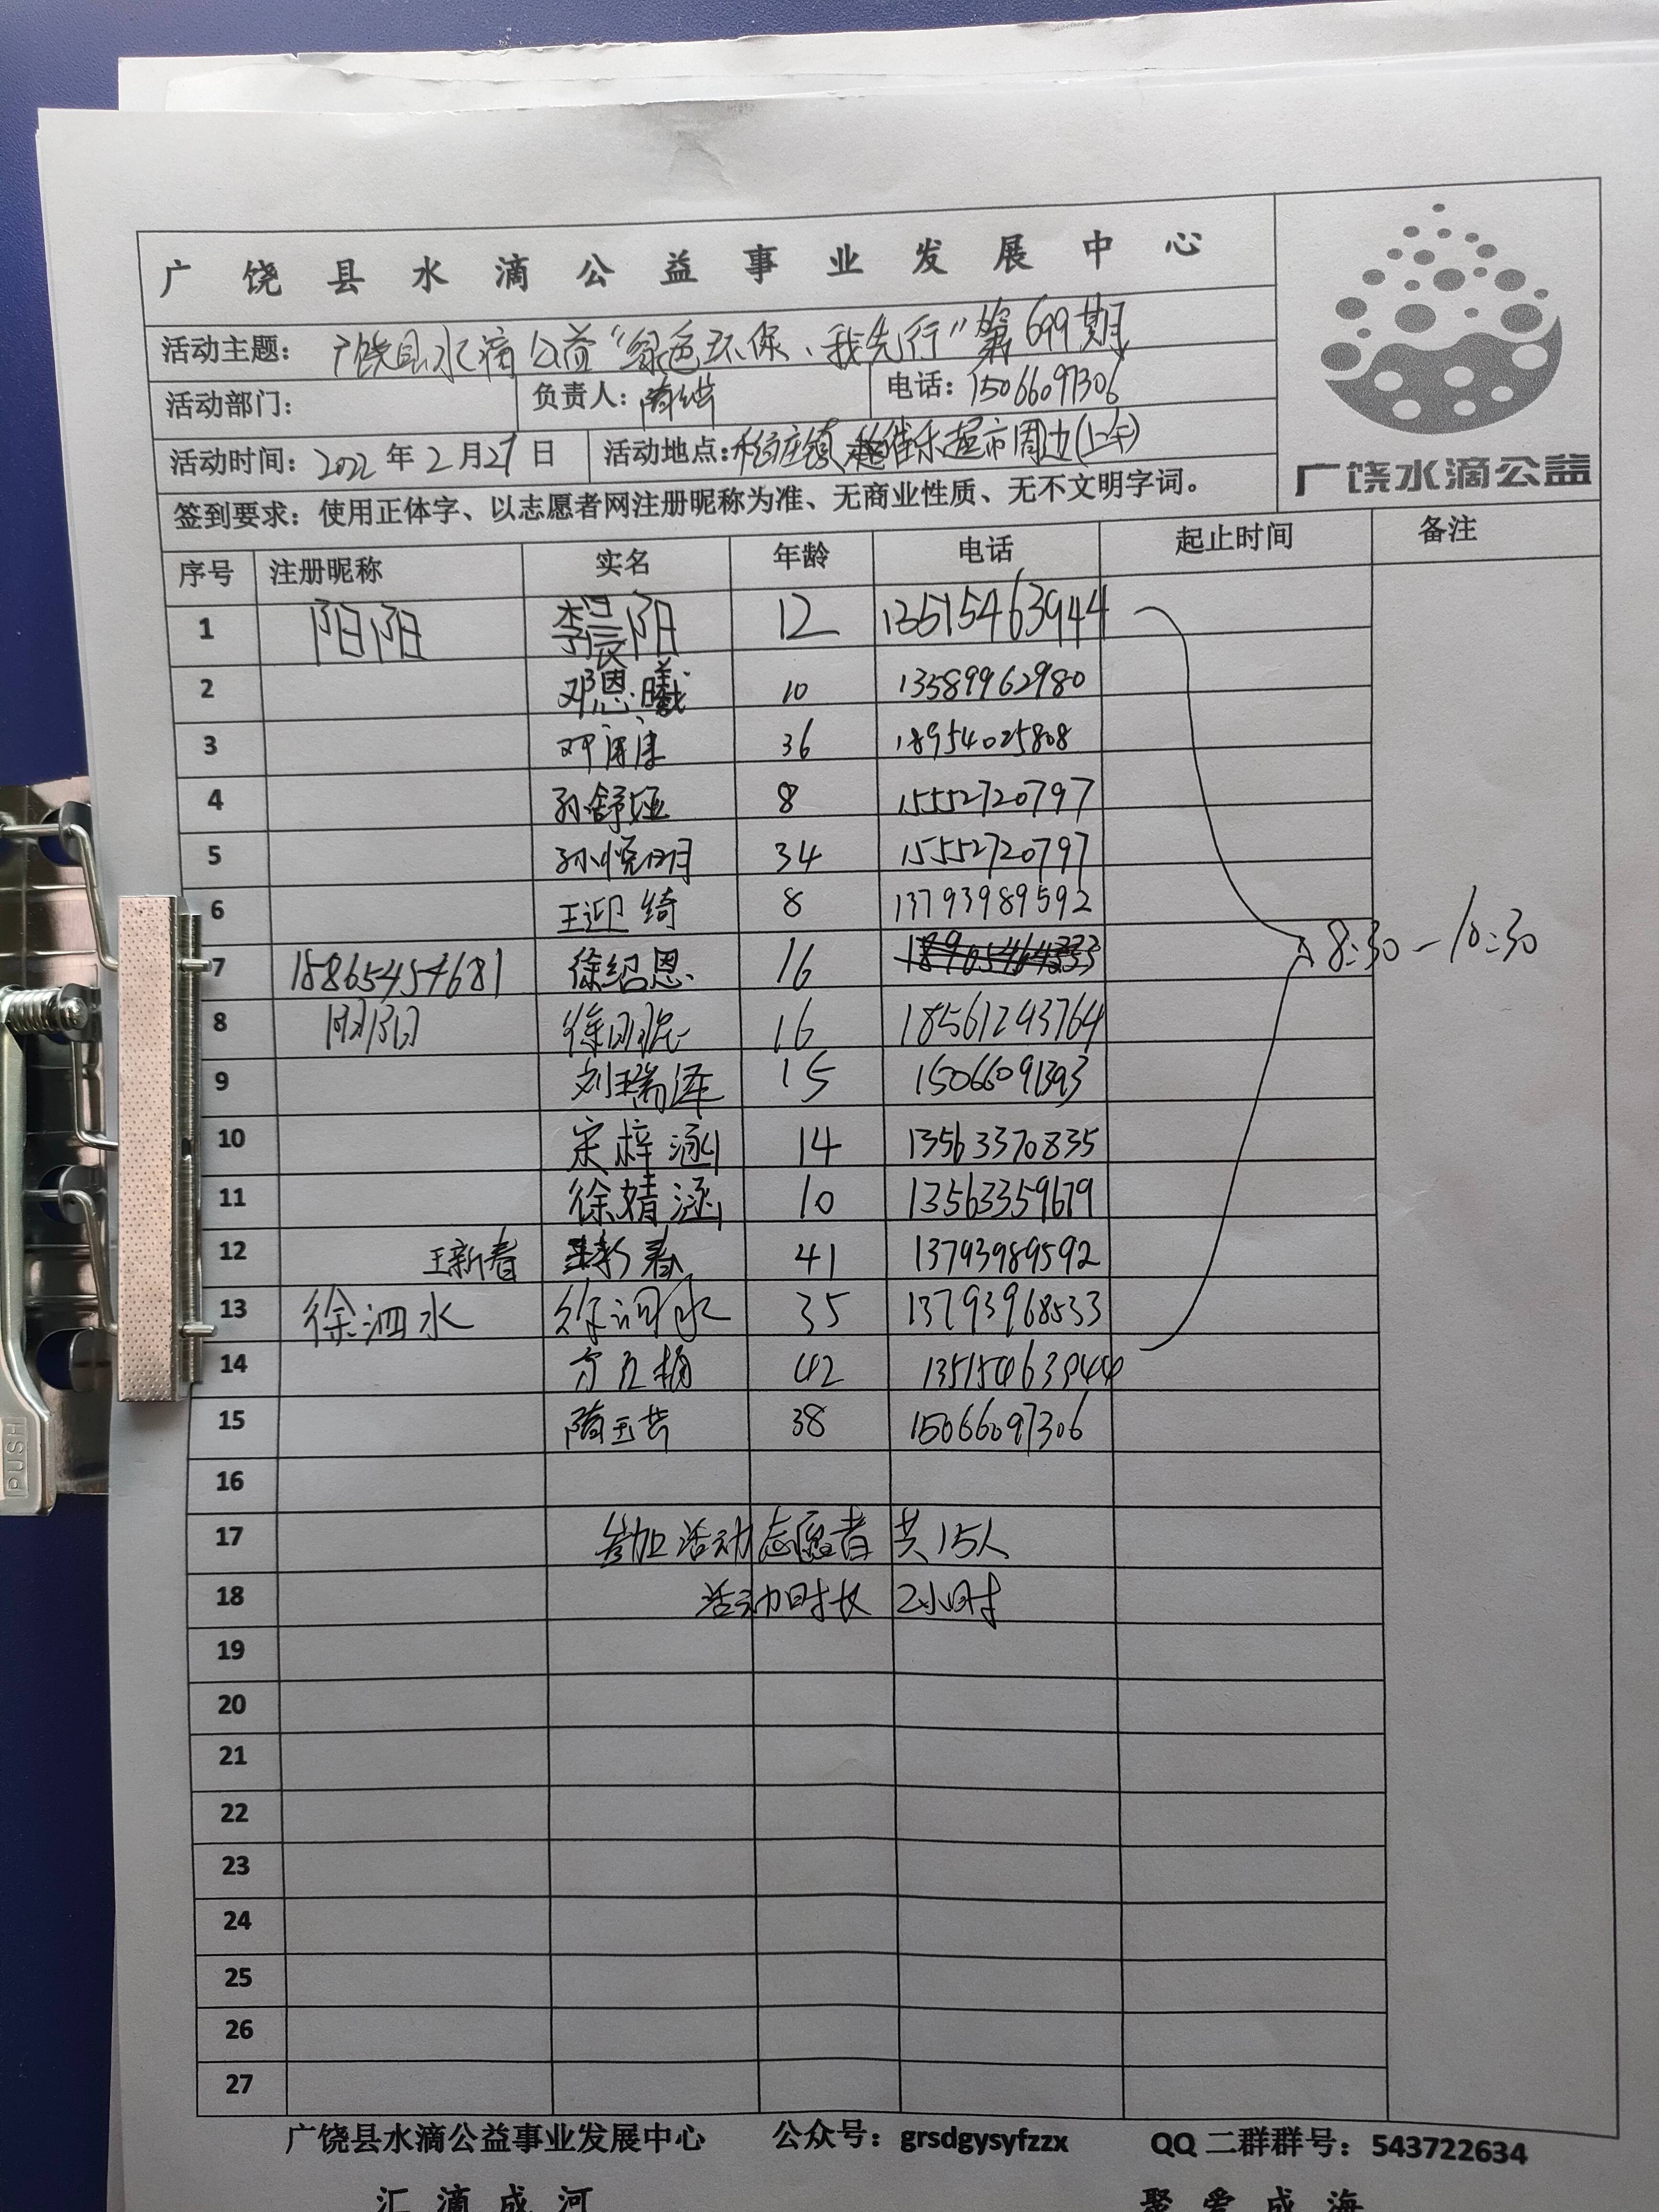 广饶县水滴公益事业发展中心
活动主题：广饶县水滴公益"绿色环保、我先行"第699期
活动部门： 负责人： 电话：15066097306
活动时间：2022年2月27日 活动地点：稻庄镇佳乐超市周边(上午)
广饶水滴公益
签到要求：使用正体字、以志愿者网注册昵称为准、无商业性质、无不文明字词。
序号 注册昵称 实名 年龄 电话 起止时间 备注
1 阳阳 李晨阳 12 13515463944
2 邓恩曦 10 13589962980
3 邓 36 18954025808
4 孙舒娅 8 15552720797
5 孙悦明 34 15552720797
6 王迎绮 8 13793989592
8:30-10:30
7 18865454681 徐绍恩 16
8 徐 16 18561243764
9 刘瑞泽 15 15066091393
10 宋梓涵 14 13563370835
11 徐婧涵 10 13563359679
12 王新春 王新春 41 13793989592
13 徐泗水 徐泗水 35 13793968533
14 42 13515463944
15 隋玉芸 38 15066097306
16
17 参加活动志愿者共15人
18 活动时长 2小时
19
20
21
22
23
24
25
26
27
广饶县水滴公益事业发展中心 公众号：grsdgysyfzzx QQ二群群号：543722634
汇滴成河 聚爱成海